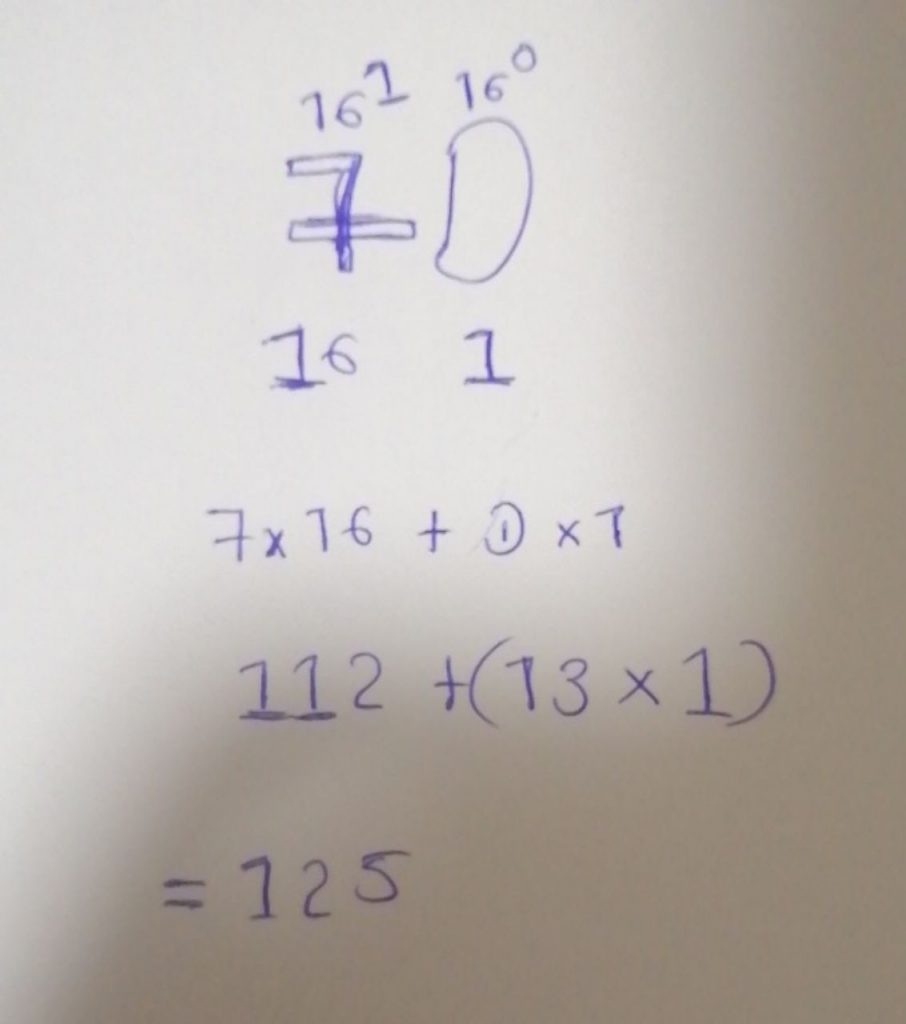 16¹ 16⁰
7 D
16 1
7 x 16 + D x 1
112 + (13 x 1)
= 125